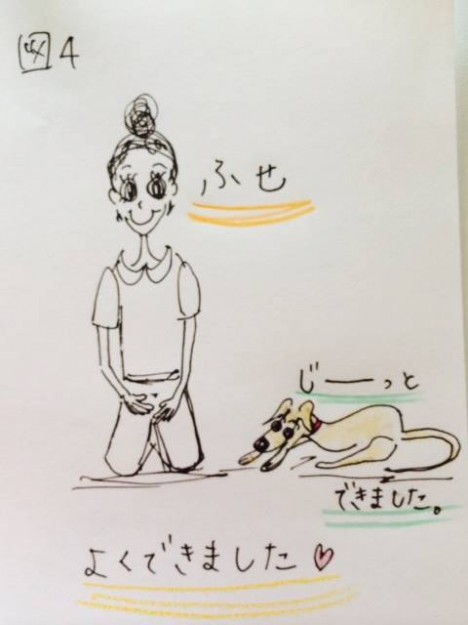 図4
ふせ
じーっと
できました。
よくできました♡